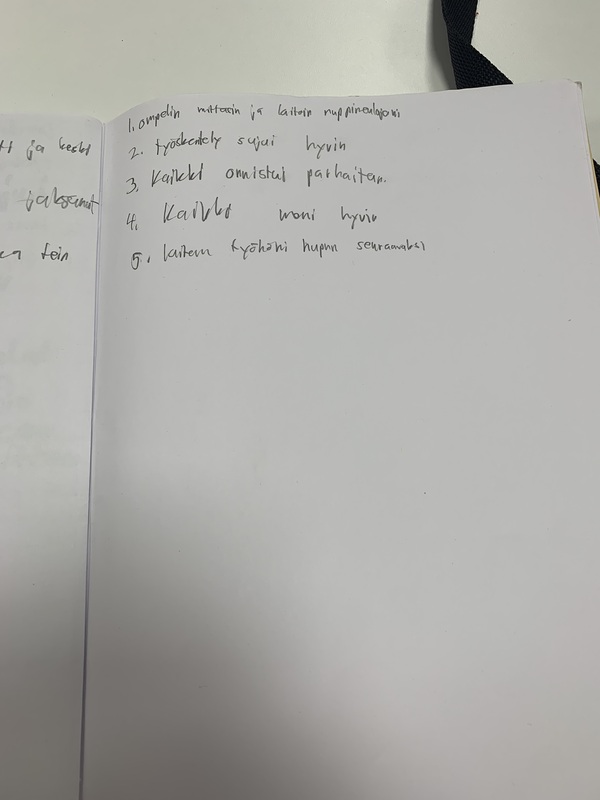 tt ja keski
jaksanut
tein
1. ompelin mittasin ja laitoin nuppineulojani
2. työskentely sujui hyvin
3. Kaikki onnistui parhaitan.
4. Kaikki moni hyvin
5. laitem työhöni hupun seuraavaksi